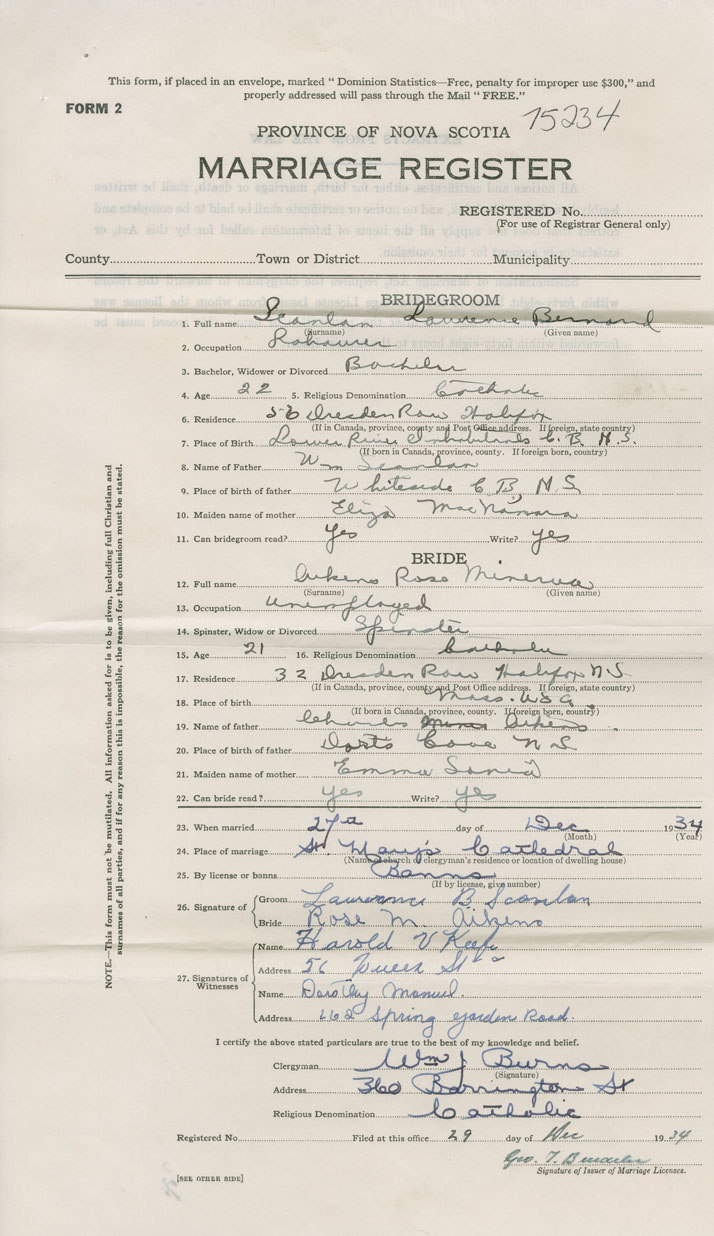 This form, if placed in an envelope, marked " Dominion Statistics—Free, penalty for improper use $300," and
properly addressed will pass through the Mail " FREE."
FORM 2
15234
PROVINCE OF NOVA SCOTIA
MARRIAGE REGISTER
REGISTERED No.
(For use of Registrar General only)
County Town or District Municipality
BRIDEGROOM
1. Full name Scanlan Laurence Bernard
(Surname) (Given name)
2. Occupation Labourer
3. Bachelor, Widower or Divorced Bachelor
4. Age 22 5. Religious Denomination Catholic
6. Residence 56 Dresden Row Halifax
(If in Canada, province, county and Post Office address. If foreign, state country)
7. Place of Birth Lower River Inhabitants C. B. N. S.
(If born in Canada, province, county. If foreign born, country)
8. Name of Father Wm Scanlan
9. Place of birth of father Whiteside C B, N S
10. Maiden name of mother Eliza MacNamara
11. Can bridegroom read? Yes Write? yes
BRIDE
12. Full name Aikens Rose Minerva
(Surname) (Given name)
13. Occupation Unemployed
14. Spinster, Widow or Divorced Spinster
15. Age 21 16. Religious Denomination Catholic
17. Residence 32 Dresden Row Halifax N.S.
(If in Canada, province, county and Post Office address. If foreign, state country)
18. Place of birth Mass. USA
(If born in Canada, province, county. If foreign born, country)
19. Name of father Charles Aikens
20. Place of birth of father Cove N S
21. Maiden name of mother Emma
22. Can bride read? yes Write? yes
23. When married 27th day of Dec 1934
(Month) (Year)
24. Place of marriage St. Mary's Cathedral
(Name of church or clergyman's residence or location of dwelling house)
25. By license or banns Banns
(If by license, give number)
26. Signature of Groom Laurence B Scanlan
Bride Rose M. Aikens
27. Signatures of Witnesses
Name Harold V Keefe
Address 56 Queen St
Name Dorothy Manuel.
Address Spring Garden Road.
I certify the above stated particulars are true to the best of my knowledge and belief.
Clergyman Wm J Burns
(Signature)
Address 360 Barrington St
Religious Denomination Catholic
Registered No. Filed at this office 29 day of Dec 1934
Geo. T.
Signature of Issuer of Marriage Licenses.
[SEE OTHER SIDE]
NOTE.—This form must not be mutilated. All information asked for is to be given, including full Christian and
surnames of all parties, and if for any reason this is impossible, the reason for the omission must be stated.